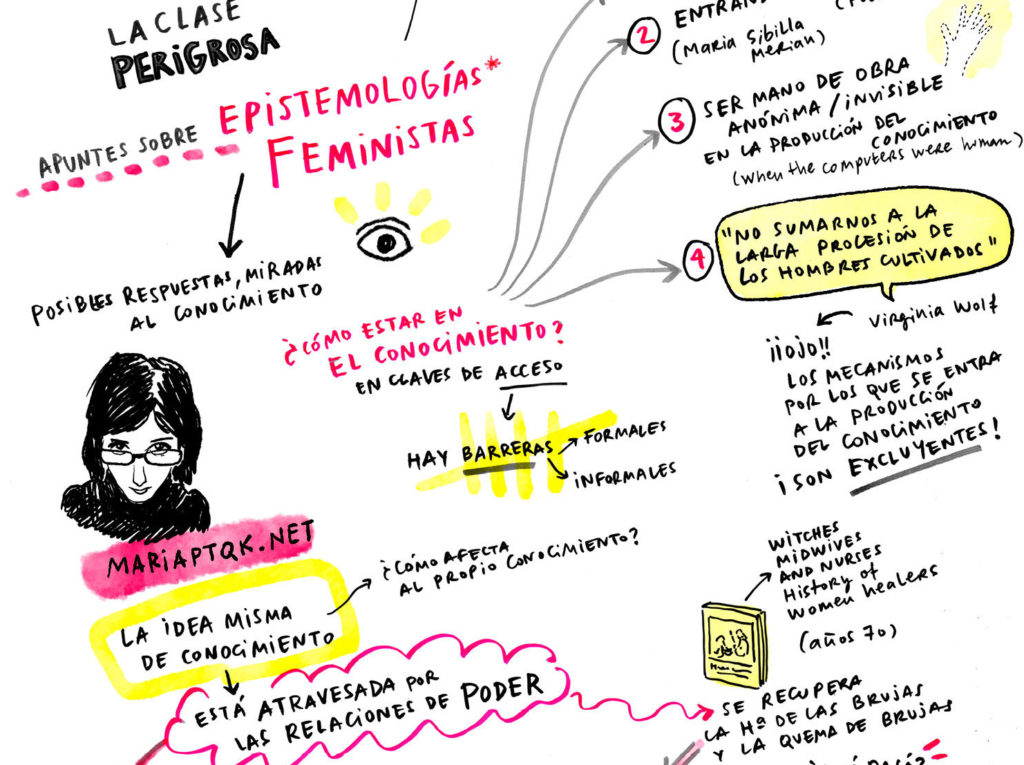 LA CLASE
PERIGROSA
APUNTES SOBRE
EPISTEMOLOGÍAS*
FEMINISTAS
POSIBLES RESPUESTAS, MIRADAS
AL CONOCIMIENTO
MARIAPTQK.NET
LA IDEA MISMA
DE CONOCIMIENTO
¿CÓMO AFECTA
AL PROPIO CONOCIMIENTO?
ESTÁ ATRAVESADA POR
LAS RELACIONES DE PODER
¿CÓMO ESTAR EN
EL CONOCIMIENTO?
EN CLAVES DE ACCESO
HAY BARRERAS
FORMALES
INFORMALES
2
(MARIA SIBILLA
MERIAN)
3
SER MANO DE OBRA
ANÓNIMA / INVISIBLE
EN LA PRODUCCIÓN DEL
CONOCIMIENTO
(when the computers were human)
4
"NO SUMARNOS A LA
LARGA PROCESIÓN DE
LOS HOMBRES CULTIVADOS"
Virginia Wolf
¡¡OJO!!
LOS MECANISMOS
POR LOS QUE SE ENTRA
A LA PRODUCCIÓN
DEL CONOCIMIENTO
¡SON EXCLUYENTES!
WITCHES
MIDWIVES
AND NURSES
History of
women healers
(años 70)
SE RECUPERA
LA Hª DE LAS BRUJAS
Y LA QUEMA DE BRUJAS